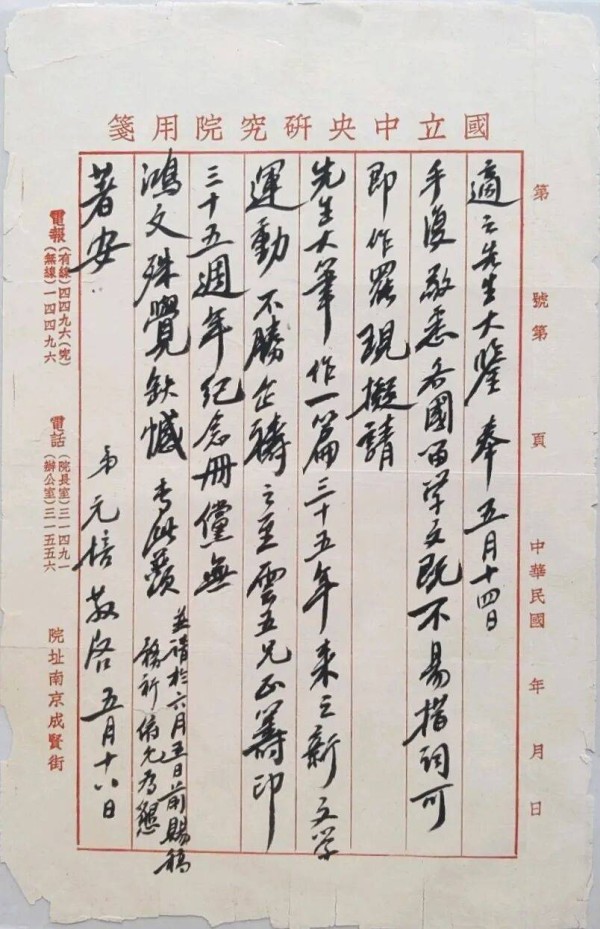 國立中央研究院用箋
第　號第　頁　中華民國　年　月　日
適之先生大鑒奉五月十四日
手復敬悉各國留學文既不易措詞可
即作罷現擬請
先生大筆作一篇三十五年來之新文学
運動不勝企禱之至雲五兄正籌印
三十五週年紀念冊儻無
鴻文殊覺缺憾專此羨
並請於六月五日前賜稿
務祈俯允為懇
著安
弟元培敬啓五月十八日
電報（有線）四四九六（究）
（無線）一四四九六
電話（院長室）三一四九一
（辦公室）三一五五六
院址南京成賢街